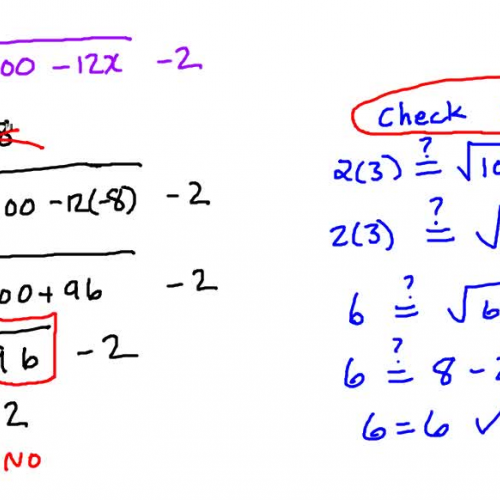 00 - 12x - 2
00 - 12(-8) - 2
00 + 96 - 2
96 - 2
2
NO
Check
2(3) ≟ √10
2(3) ≟ √
6 ≟ √6
6 ≟ 8 - 2
6 = 6 ✓